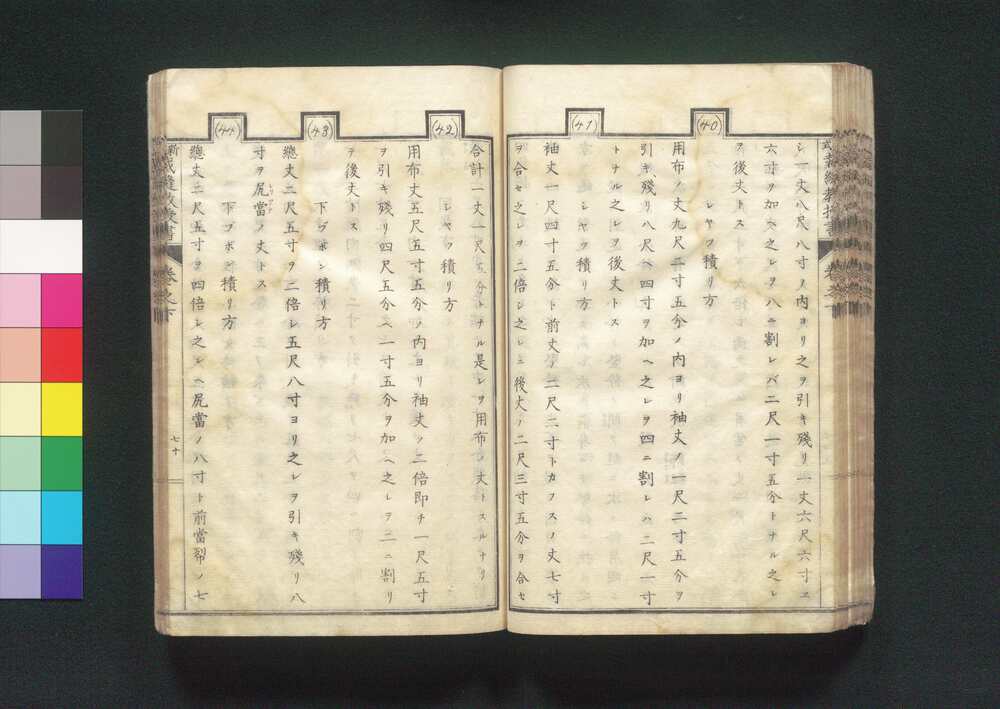 シ一丈八尺八寸ノ内ヨリ之ヲ引キ残リ一丈六尺六寸ヱ
六寸ヲ加ヘ之レヲ八ニ割レバ二尺一寸五分トナル之レ
ヲ後丈トス
(40)
シヤツ積リ方
用布ノ丈九尺二寸五分ノ内ヨリ袖丈ノ一尺二寸五分ヲ
引キ残リ八尺ヘ四寸ヲ加ヘ之レヲ四ニ割レハ二尺一寸
トナル之レヲ後丈トス
(41)
シヤツ積リ方
袖丈一尺四寸五分ト前丈ノ二尺二寸トカフスノ丈七寸
ヲ合セ之レヲ二倍シ之レニ後丈ノ二尺三寸五分ヲ合セ
合計一丈一尺五分トナル是レヲ用布ノ丈トスルナリ
(42)
シヤツ積リ方
用布丈五尺五寸五分ノ内ヨリ袖丈ノ二倍即チ一尺五寸
ヲ引キ残リ四尺五分ヘ一寸五分ヲ加ヘ之レヲ二ニ割リ
ヲ後丈トス
(43)
下ヅボン積リ方
總丈二尺五寸ヲ二倍シ五尺八寸ヨリ之レヲ引キ残リ八
寸ヲ尻當ノ丈トス
(44)
下ヅボン積リ方
總丈二尺五寸ヲ四倍シ之レヘ尻當ノ八寸ト前當帬ノ七
卷之下
七十